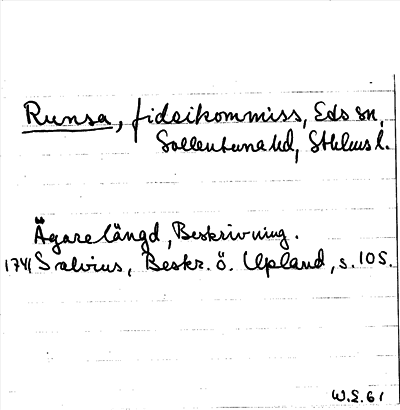 Runsa, fideikommiss, Eds sn,
Sollentuna hd, Sthlms l.
Ägarelängd, Beskrivning.
1741 Salvius, Beskr. ö. Upland, s. 105.
W.S. 61